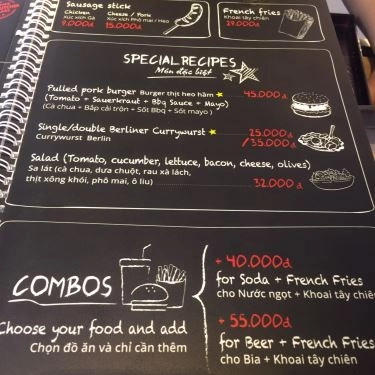 Sausage stick
Chicken Cheese / Pork
Xúc xích Gà Xúc xích Phô mai / Heo
9.000đ 15.000đ
French fries
Khoai tây chiên
29.000đ
SPECIAL RECIPES
Món đặc biệt
Pulled pork burger Burger thịt heo hầm 45.000đ
(Tomato + Sauerkraut + Bbq Sauce + Mayo)
(Cà chua + Bắp cải trộn + Sốt Bbq + Sốt mayo )
Single/double Berliner Currywurst 25.000
Currywurst Berlin /35.000đ
Salad (Tomato, cucumber, lettuce, bacon, cheese, olives)
Sa lát (cà chua, dưa chuột, rau xà lách,
thịt xông khói, phô mai, ô liu) 32.000đ
COMBOS
Choose your food and add
Chọn đồ ăn và chỉ cần thêm
+ 40.000đ
for Soda + French Fries
cho Nước ngọt + Khoai tây chiên
+ 55.000đ
for Beer + French Fries
cho Bia + Khoai tây chiên